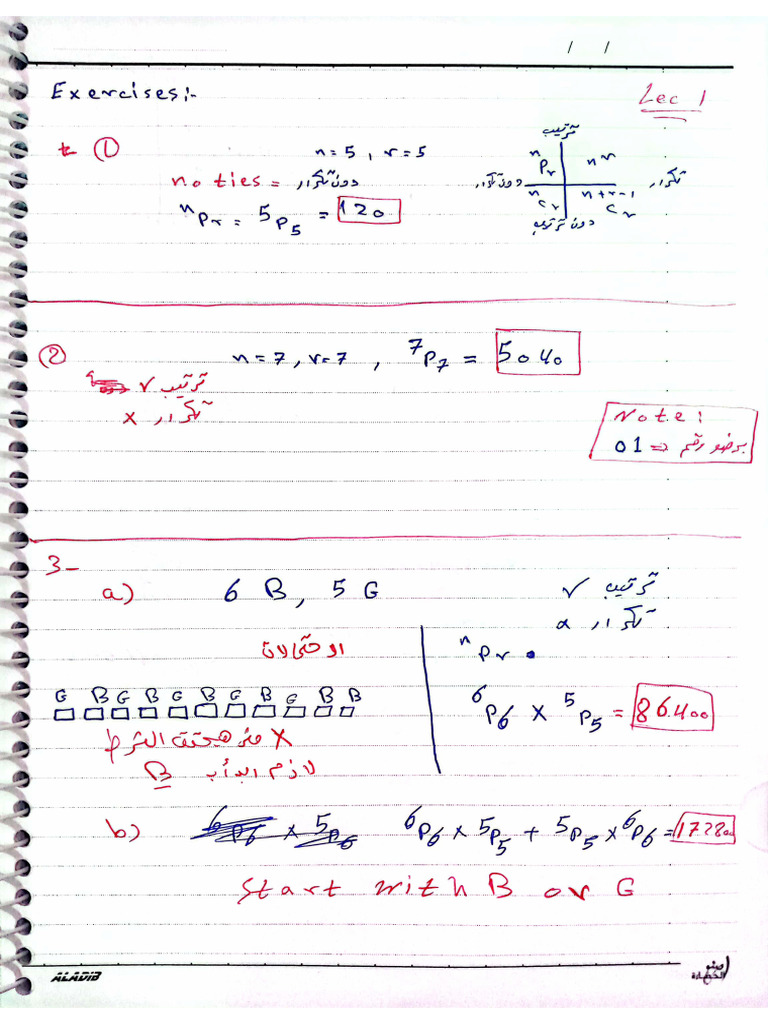 / /
Exercises:-
Lec 1
(1)
n=5 , r=5
no ties = دون تكرار
nPr = 5P5 = 120
ترتيب
nPr nr
دون تكرار تكرار
nCr n+r-1Cr
دون ترتيب
(2) n=7 , r=7 , 7P7 = 5040
ترتيب √
تكرار x
Note:
01 <=
3-
a) 6 B , 5 G
ترتيب √
تكرار x
الاحتمالات
nPr
G B G B G B G B G B B
6P6 x 5P5 = 86400
X مش هيحقق الشرط
لازم ابدأ ب B
b) 6P6 x 5P5 + 5P5 x 6P6 = 172800
start with B or G
ALADIB